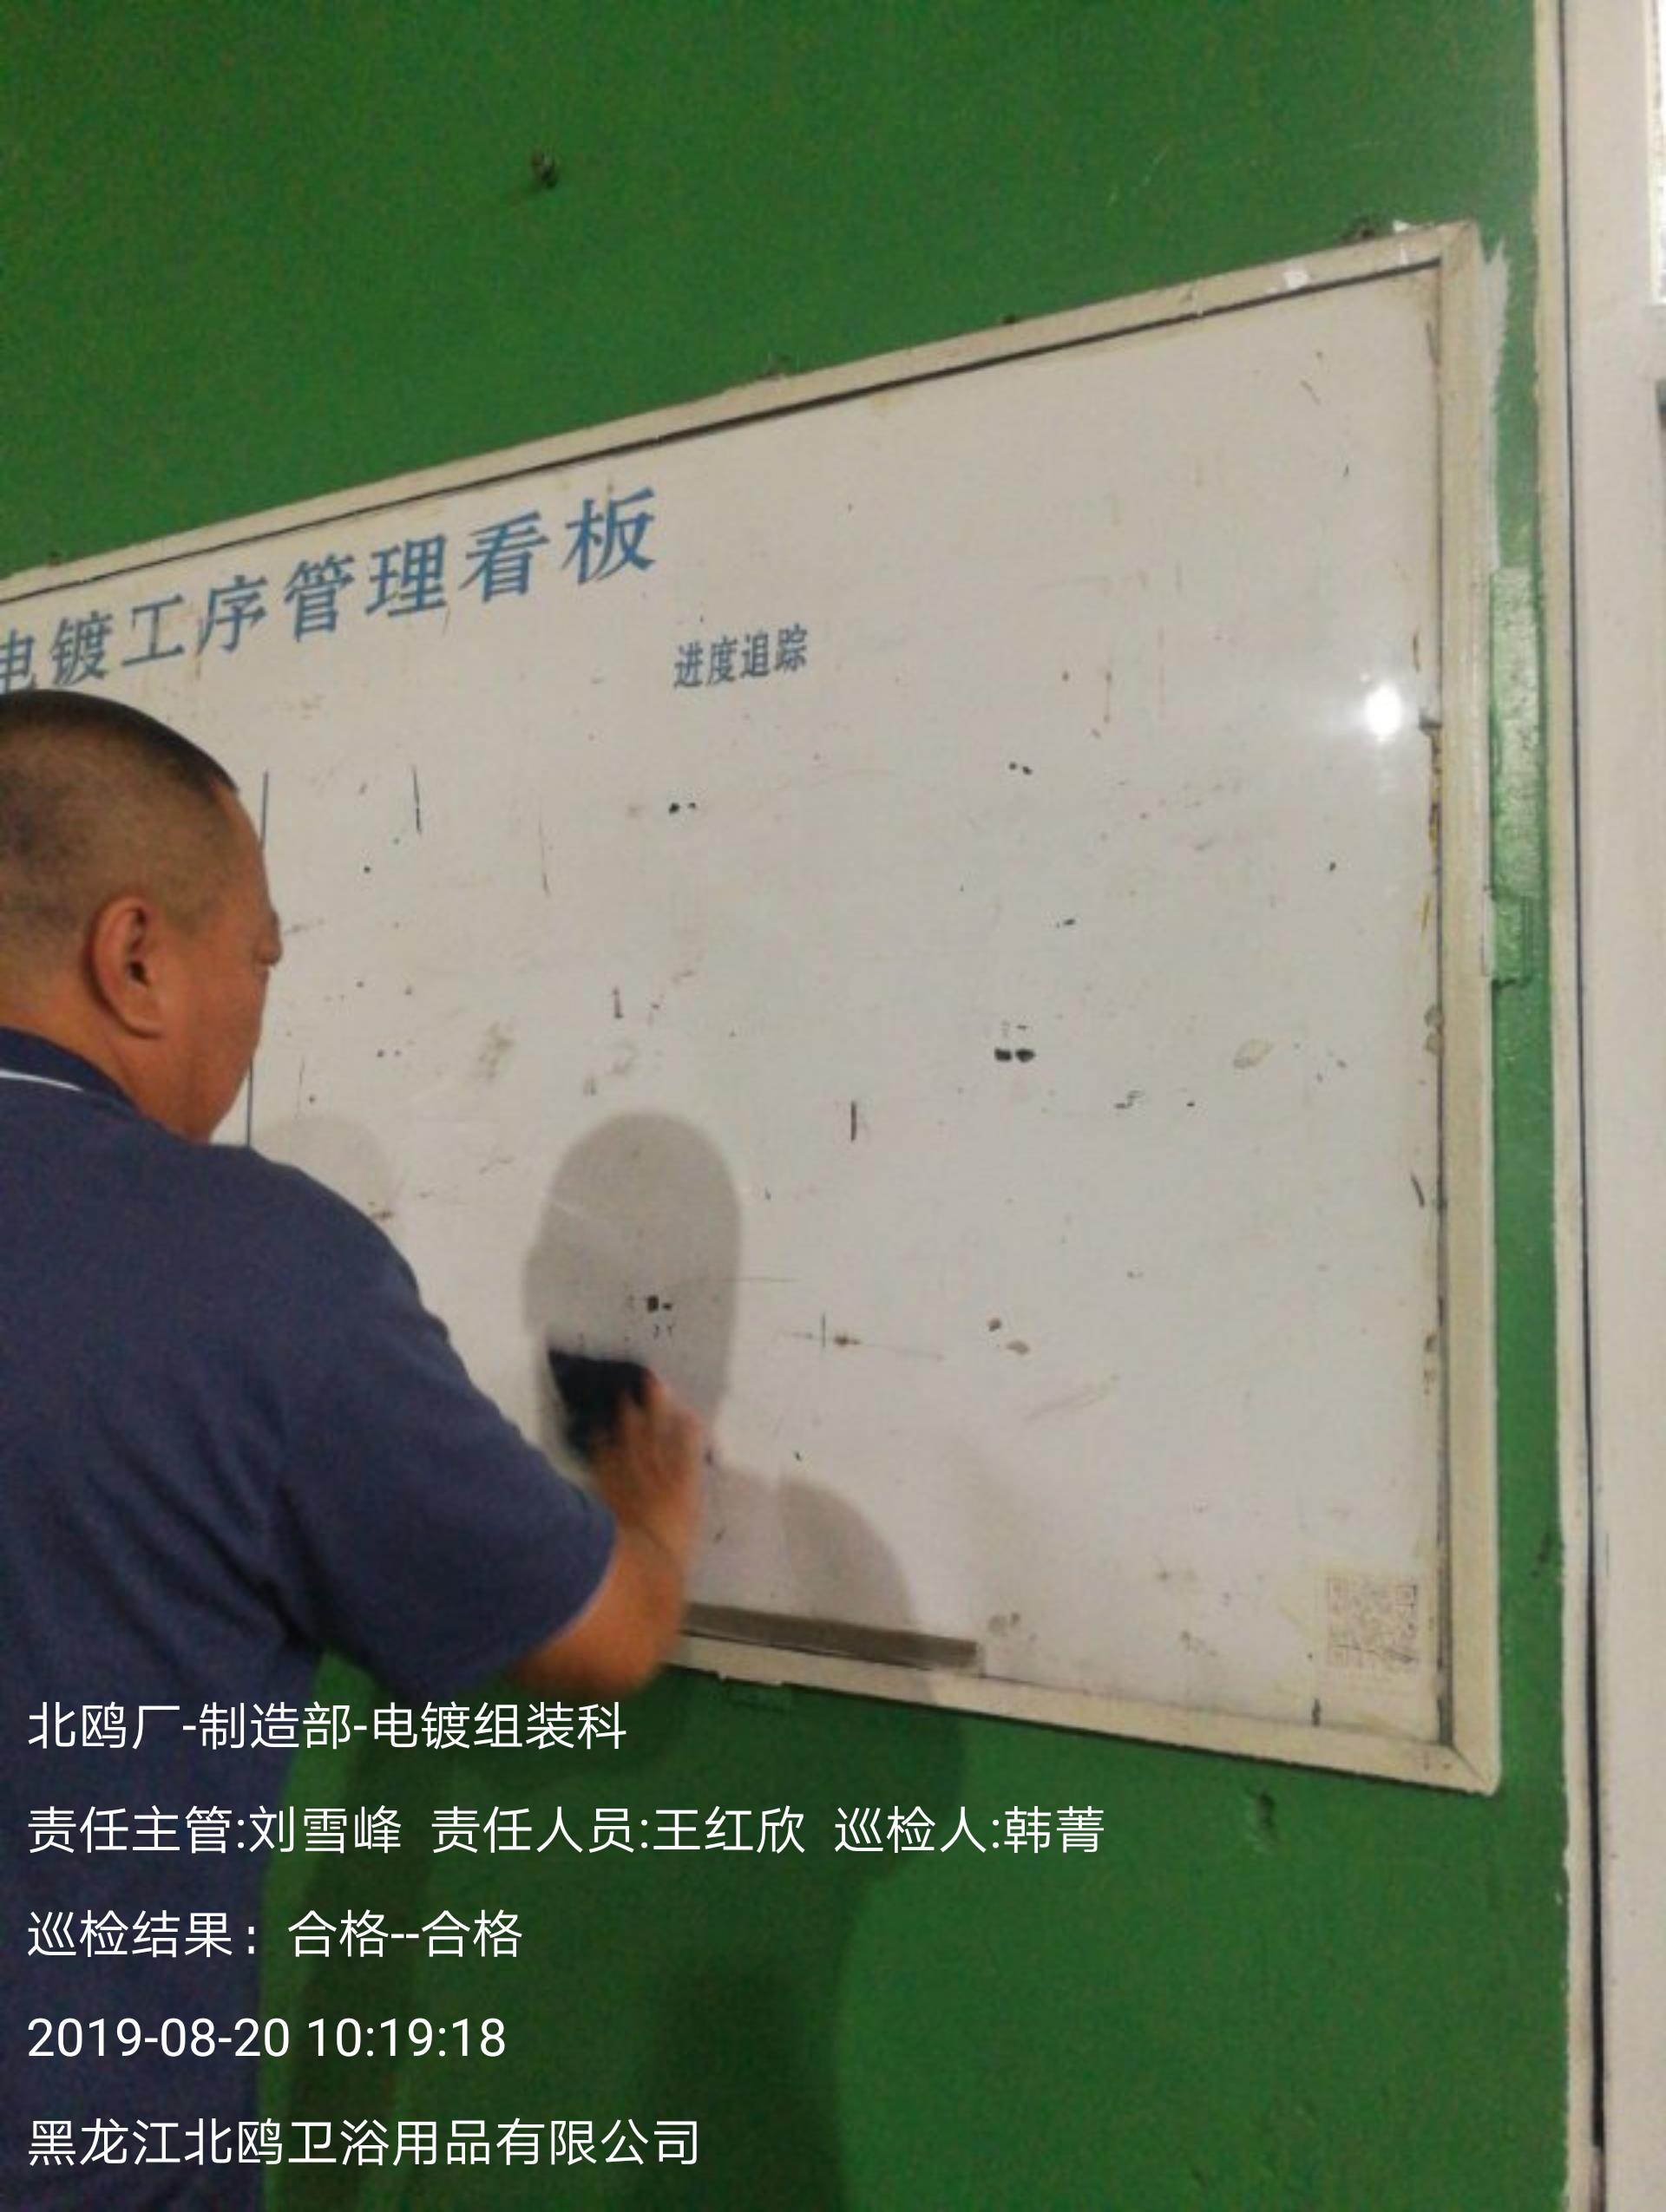 电镀工序管理看板
进度追踪
北鸥厂-制造部-电镀组装科
责任主管:刘雪峰 责任人员:王红欣 巡检人:韩菁
巡检结果：合格--合格
2019-08-20 10:19:18
黑龙江北鸥卫浴用品有限公司